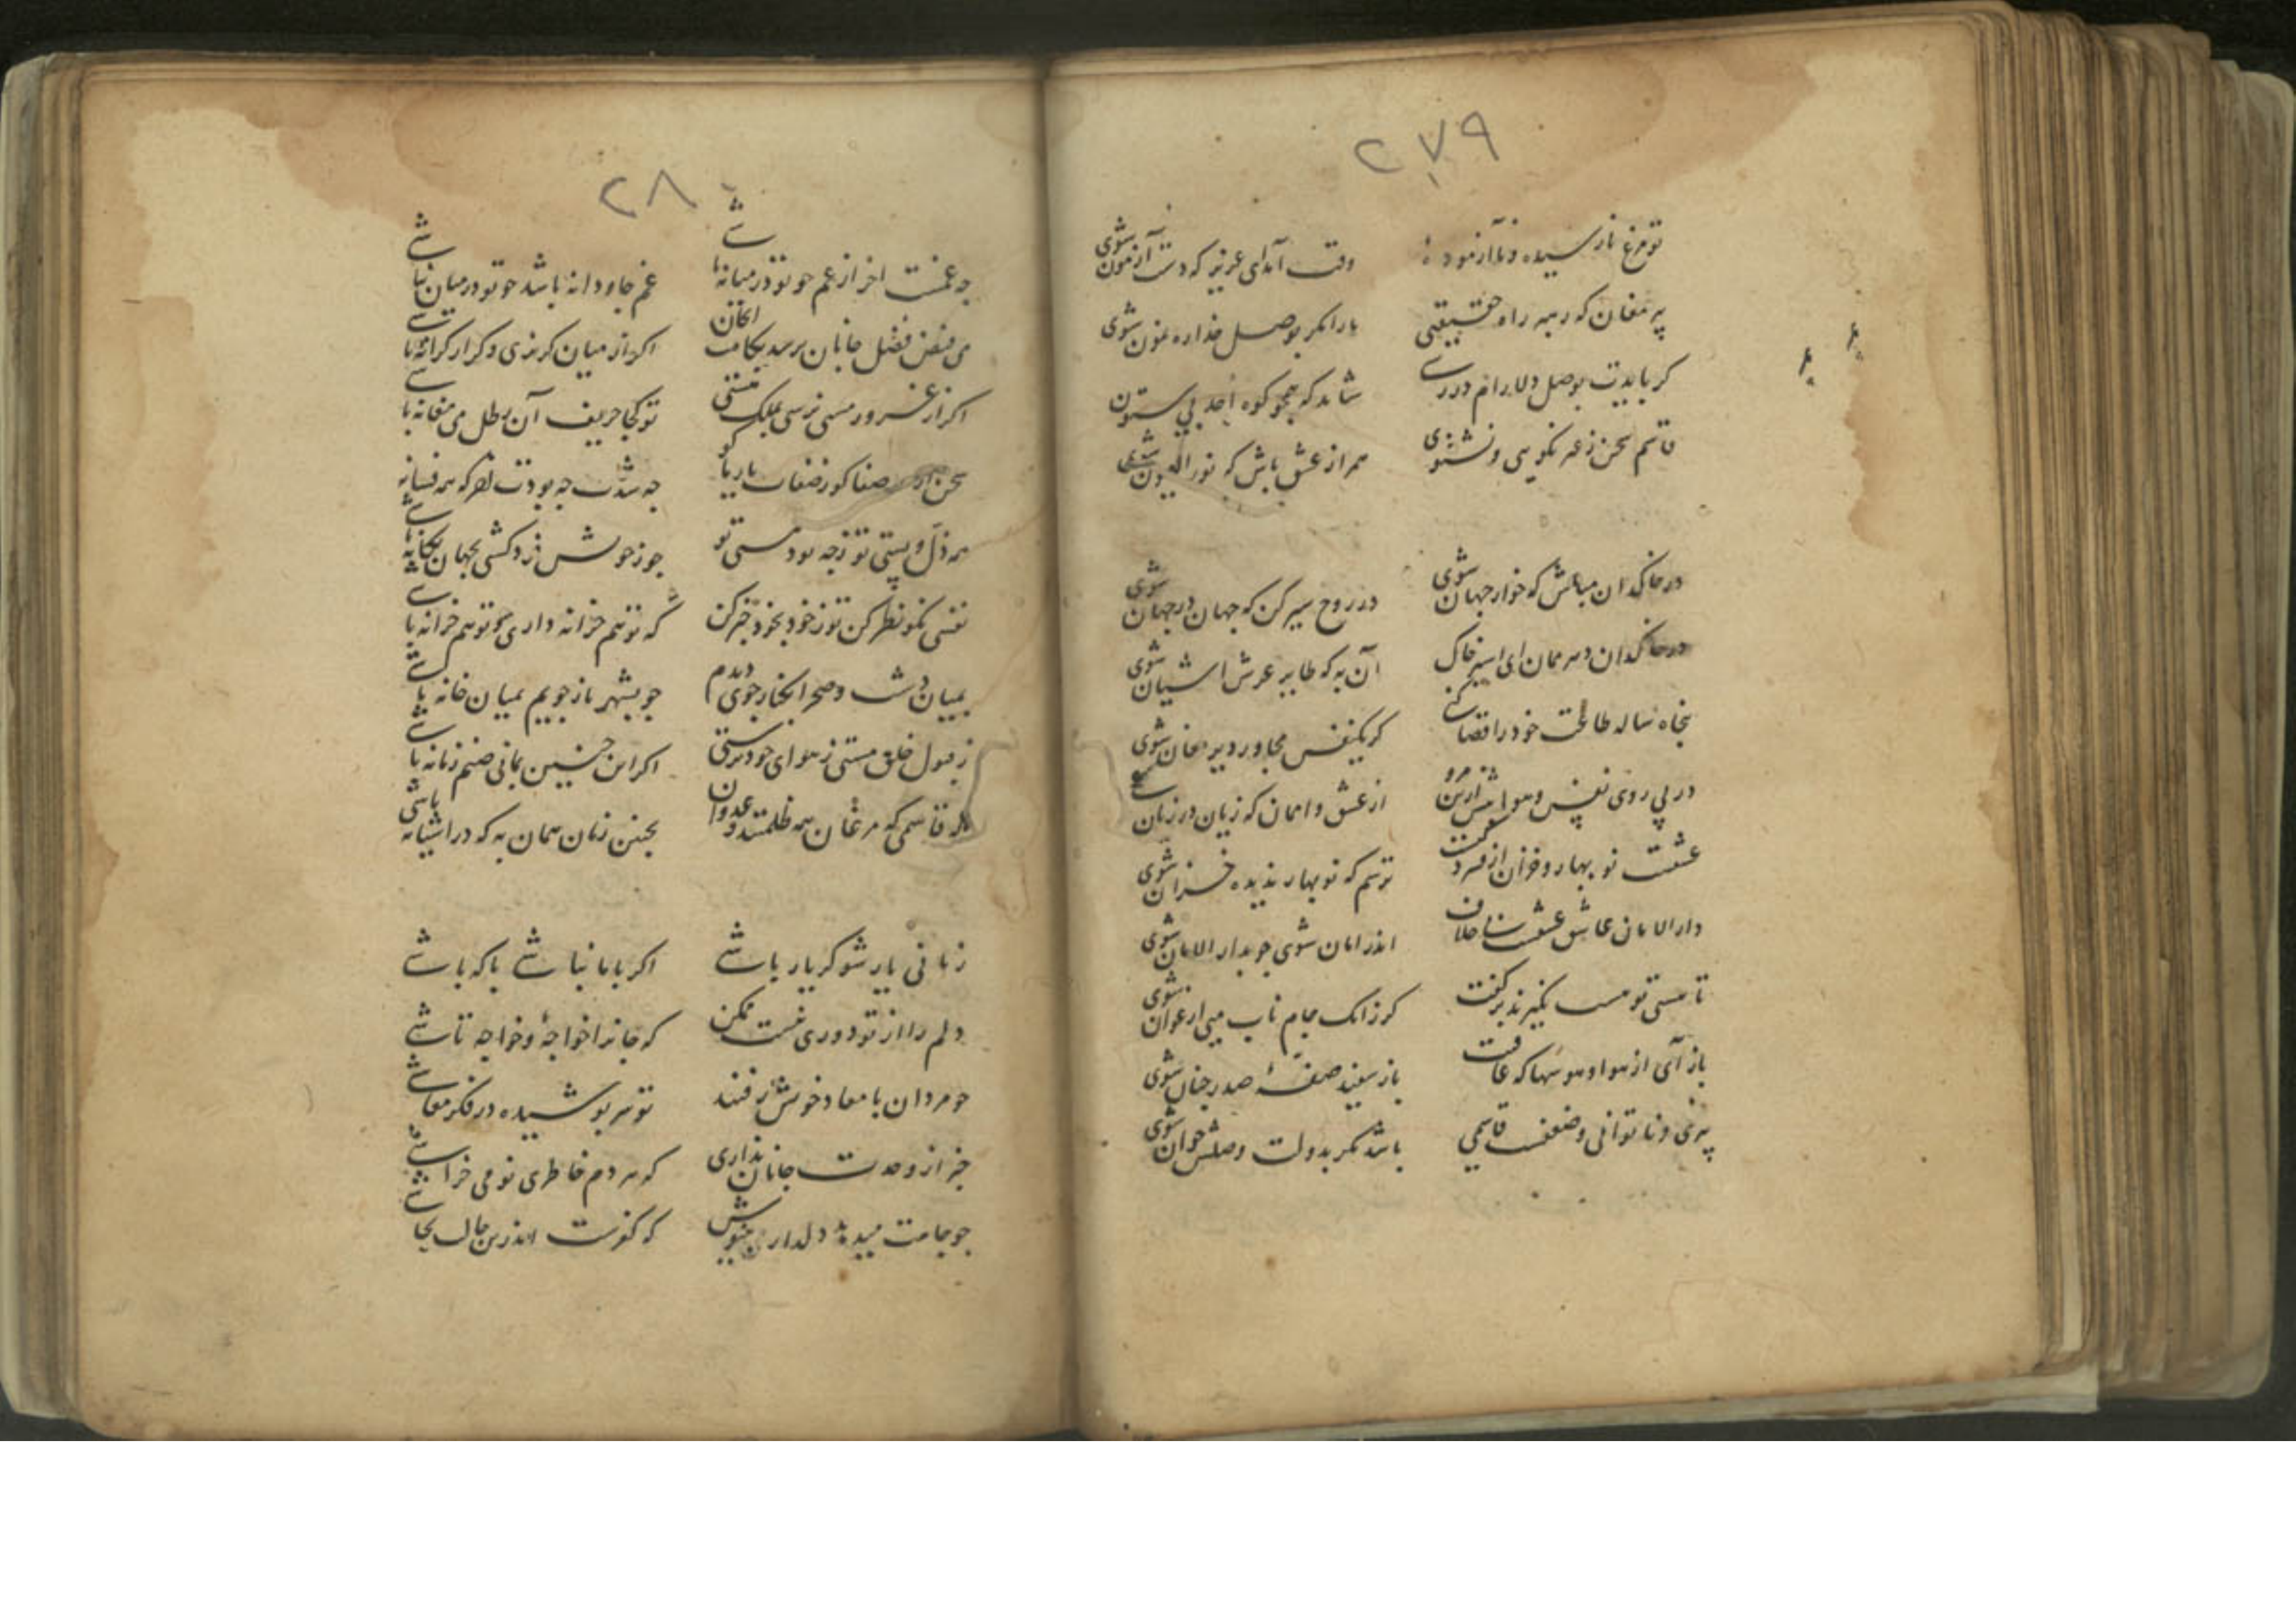 ۲۷۹
تو مرغ نارسیده و ناآزموده
وقت آمدای عزیز که دست آزمون شوی
پیر مغان که رهبر راه حقیقتی
ما را مگر بوصل خدا رهنمون شوی
کر بایدیت بوصل دلارام در رسی
شاید که همچو کوه احد بی ستون شوی
قاسم سخن ز عربکویی و نشنوی
همراز عشق باش که نور العیون شوی
در خاکدان مباش که خوار جهان شوی
در روح سیر کن که جهان در جهان شوی
در خاکدان دهر ممان ای اسیر خاک
آن به که طایر عرش اشیان شوی
پنجاه ساله طاعت خود را قضا کنی
کر یکنفس مجاور دیر مغان شوی
در پی روی نفس و هوا پیش ازین مرو
از عشق وا ممان که زیان در زیان شوی
عشقت نو بهار و خزان از فسردکیست
ترسم که نوبهار ندیده خزان شوی
دارالامان عاشق عشقست بی خلاف
اندر امان شوی چو بدار الامان شوی
تا مستی تو مست نکیرند بر کفت
کر زانک جام ناب می ارغوان شوی
باز آی از هوا و هوسها که عاقبت
باز سفید صفهٔ صدر جنان شوی
پیری و ناتوانی و ضعفست قاسمی
باشد مکر بدولت وصلش جوان شوی
۲۸۰
چه غمست اخر از غم چو تو در میانه باشی
غم جاودانه باشد چو تو در میان نباشی
می فیض فضل جانان برسد بکامت
اکر از میان کریزی و کر از کرانه باشی
اکر از غرور مستی نرسی بملک مستی
تو کجا حریف آن رطل می مغانه باشی
سخن از صفا کو ز صفات یار با کو
چه شدت چه بودت آخر که همه فسانه باشی
همه ذل و پستی تو ز چه بود مستی تو
چو ز خویش فرد کشتی بجهان یکانه باشی
نفسی نکو نظر کن تو ز خود بخود خبر کن
که تو هم خزانه داری چو تو هم خزانه باشی
بمیان دشت و صحرا بکنار جوی دیدم
چو بشهر باز جویم بمیان خانه باشی
ز قبول خلق مستی ز هوای خود پرستی
اکر این چنین بمانی صنم زمانه باشی
قاسمی که مرغان همه ظلمتند و عدوان
بچنین زمان همان به که در اشیانه باشی
زمانی یار شو کر یار باشی
اکر با ما نباشی با که باشی
دلم را از تو دوری نیست ممکن
که جانرا خواجهٔ و خواجه تاشی
چو مردان با معاد خویش رفتند
تو سر پوشیده در فکر معاشی
خبر از وحدت جانان نداری
که هر دم خاطری نو می خراشی
چو جامت میدهد دلدار می نوش
که کفرست اندرین حالت تحاشی